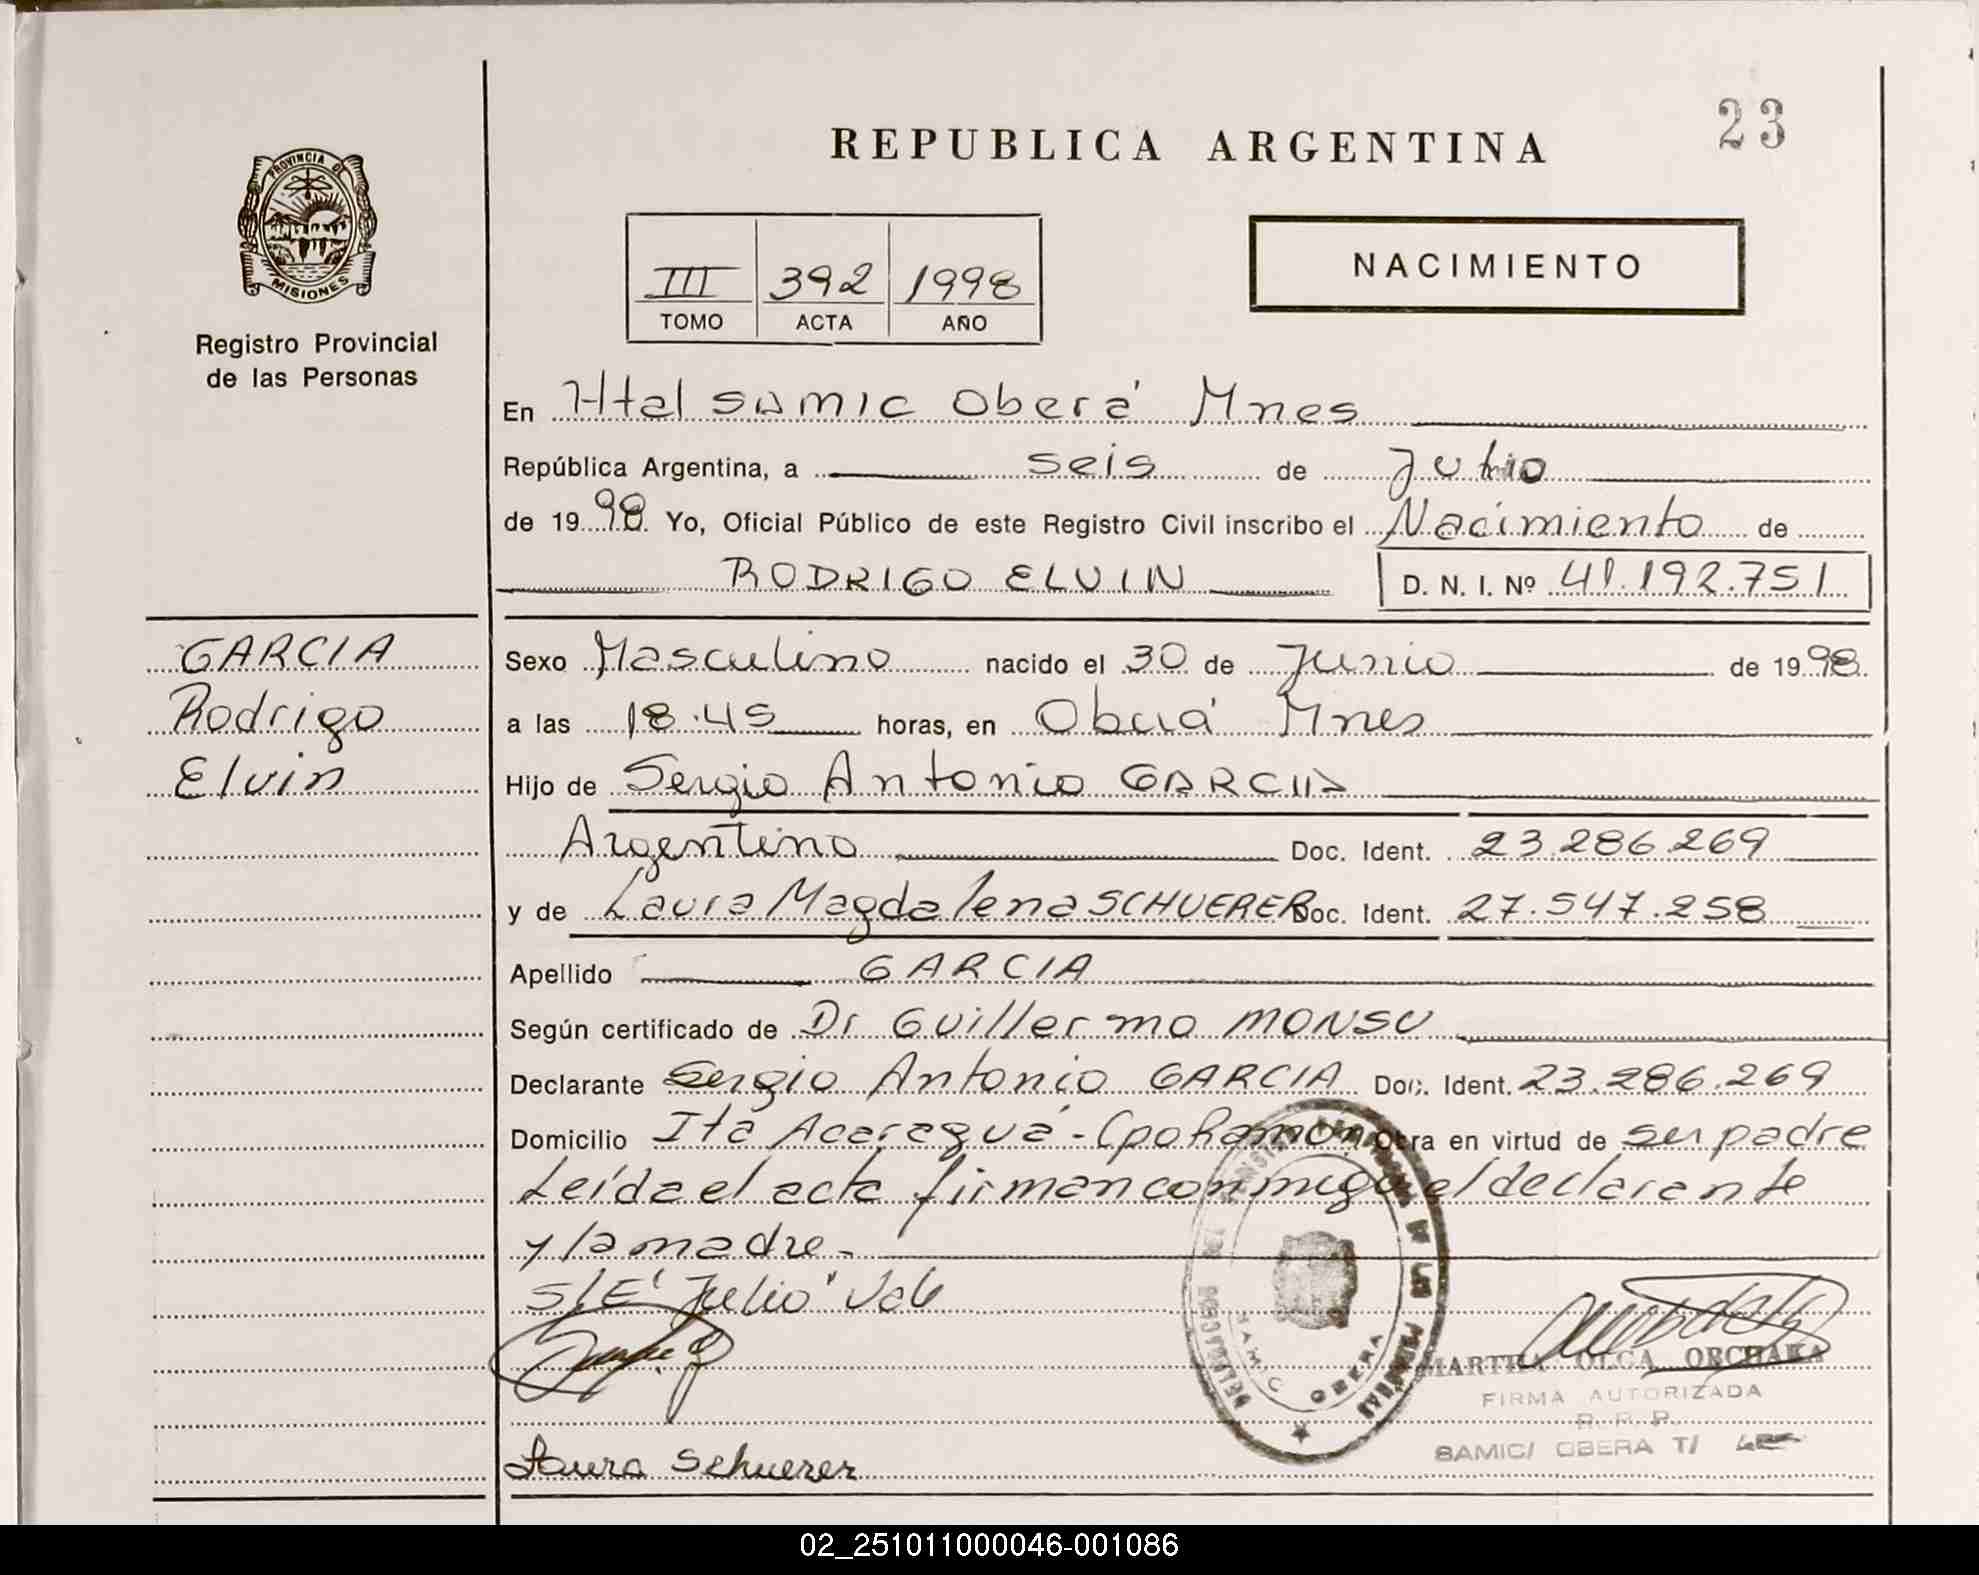 REPUBLICA ARGENTINA
23
PROVINCIA DE
MISIONES
Registro Provincial
de las Personas
III 392 1998
TOMO ACTA AÑO
NACIMIENTO
En Htal SAMIC Oberá Mnes
República Argentina, a seis de Julio
de 1998 Yo, Oficial Público de este Registro Civil inscribo el Nacimiento de
RODRIGO ELVIN D. N. I. Nº 41.192.751
GARCIA
Rodrigo
Elvin
Sexo Masculino nacido el 30 de Junio de 1998
a las 18.45 horas, en Oberá Mnes
Hijo de Sergio Antonio GARCIA
Argentino Doc. Ident. 23.286.269
y de Laura Magdalena SCHUERER Doc. Ident. 27.547.258
Apellido GARCIA
Según certificado de Dr Guillermo MONSU
Declarante Sergio Antonio GARCIA Doc. Ident. 23.286.269
Domicilio Itá Acaraguá - Cpo Ramón Obra en virtud de ser padre
Leída el acta firman conmigo el declarante
y la madre.
S/E "Julio" Vale
Laura Schuerer
SAMIC OBERA
MARTHA OLGA ORCHAKA
FIRMA AUTORIZADA
R. P. P.
SAMIC/ OBERA T/
02_251011000046-001086